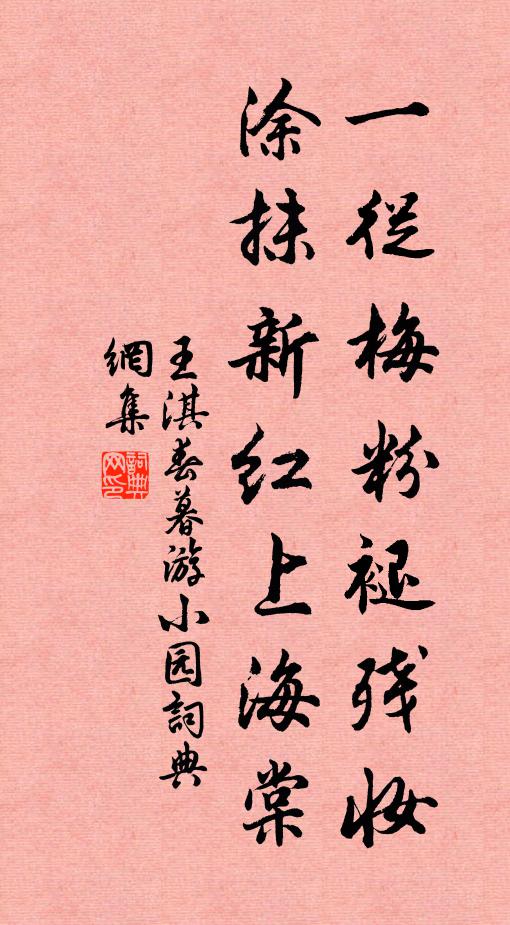 一從梅粉褪残妝
涂抹新红上海棠
王淇春暮游小园詞典
網集
詞典
网印